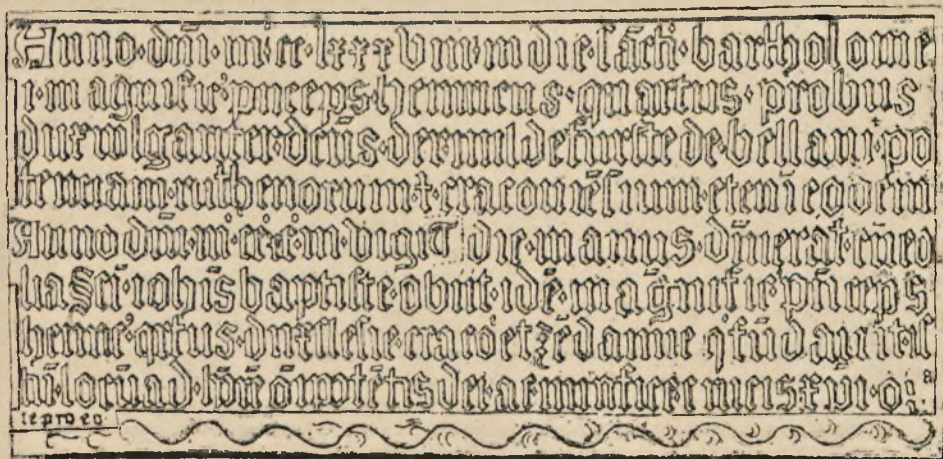 Anno·dn̄i·m·cc·lxxxviii·in die·sāctī·bartholome
i·magnific'·pnceps·henricus·quartus·probus
dux wlgariter·dcūs·der·milde furste de·bellavit·po
tenciam·ruthenorum·t·cracovieſium·et eni eodem
Anno dn̄i·m·cc·xc·in·vigīt die·manus·dn̄i erat·cū eo
lia Sc̄i·iohīs baptiste·obiit·idē·magnific pn̄ceps
henric'·qrtus·dux slesie·craco et zēdamie q' fūdavit·iſ
tū·locū ad·honorē ōīpotētis dei·ac vivifice crucis xpi·o
te pro eo